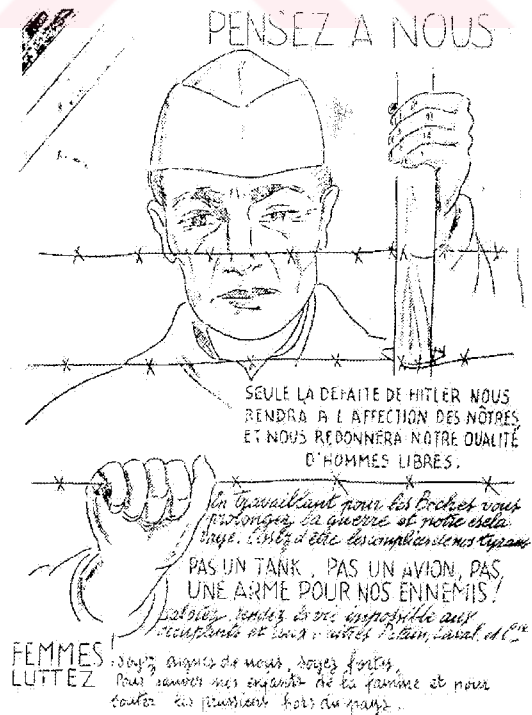 PENSEZ A NOUS
SEULE LA DEFAITE DE HITLER NOUS
RENDRA A L AFFECTION DES NÔTRES
ET NOUS REDONNERA NOTRE QUALITÉ
D'HOMMES LIBRES.
En travaillant pour les Boches vous
prolongez la guerre et notre escla
vage. Assez d'être les complices de nos tyrans
PAS UN TANK, PAS UN AVION, PAS
UNE ARME POUR NOS ENNEMIS!
Sabotez, rendez la vie impossible aux
occupants et aux traîtres Pétain, Laval, et Cie
FEMMES
LUTTEZ
Soyez dignes de nous, soyez fortes,
Pour sauver nos enfants de la famine et pour
bouter les prussiens hors du pays.